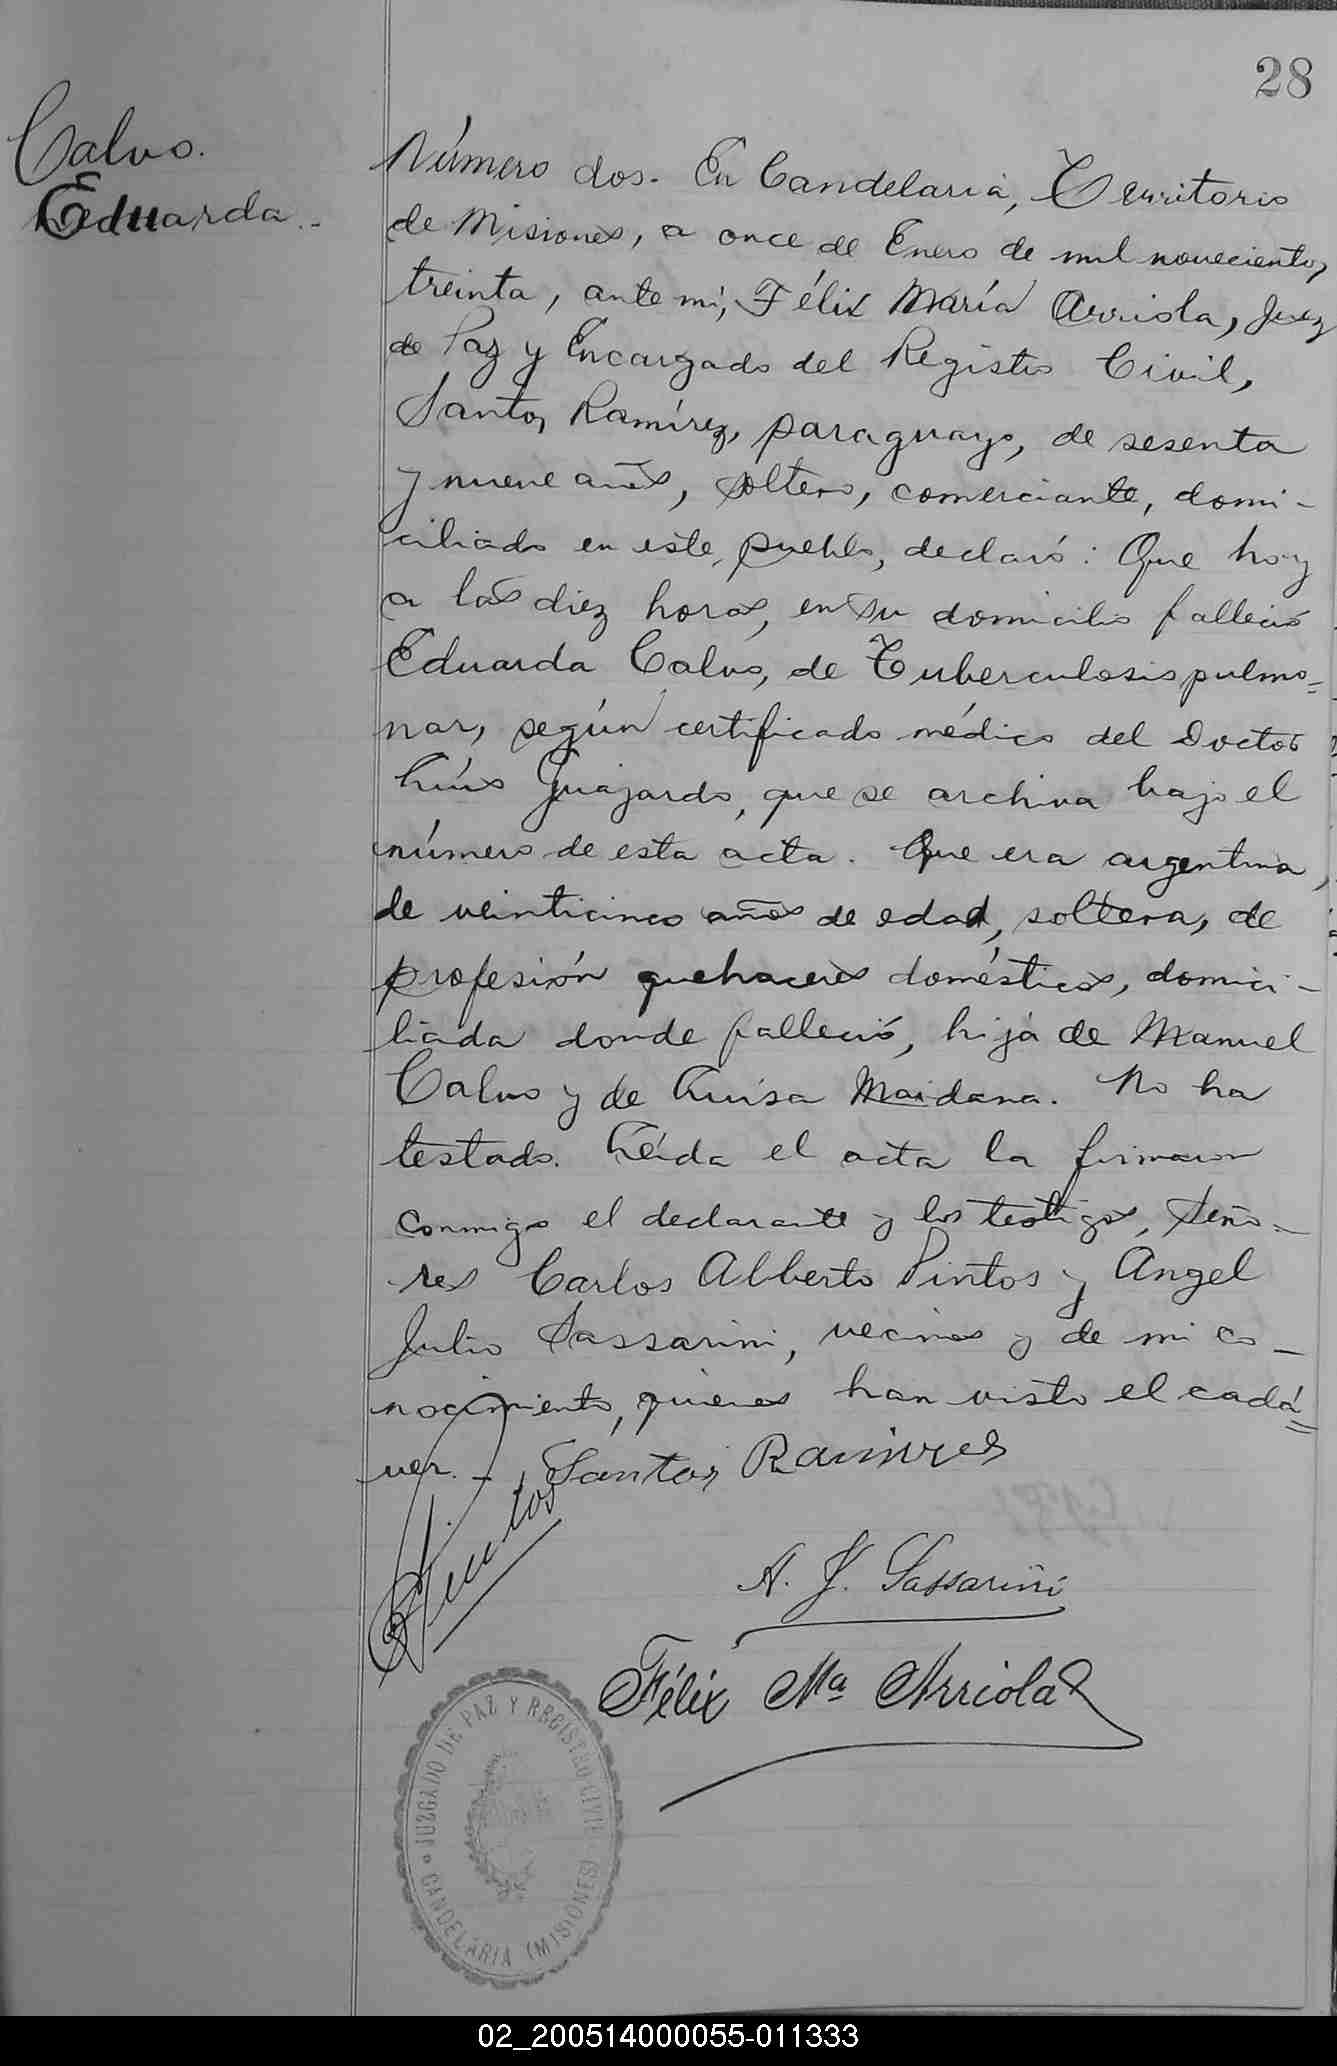 28
Calvo.
Eduarda.-
Número dos. En Candelaria, Territorio
de Misiones, a once de Enero de mil novecientos
treinta, ante mi, Félix María Arriola, Juez
de Paz y Encargado del Registro Civil,
Santos Ramírez, paraguayo, de sesenta
y nueve años, soltero, comerciante, domi-
ciliado en este pueblo, declaró: Que hoy
a las diez horas, en su domicilio falleció
Eduarda Calvo, de Tuberculosis pulmo=
nar, según certificado médico del Doctor
Luis Guajardo, que se archiva bajo el
número de esta acta. Que era argentina,
de veinticinco años de edad, soltera, de
profesión quehaceres domésticos, domici-
liada donde falleció, hija de Manuel
Calvo y de Luisa Maidana. No ha
testado. Leída el acta la firmaron
conmigo el declarante y los testigos, Seño-
res Carlos Alberto Pintos y Angel
Julio Sassarini, vecinos y de mi co-
nocimiento, quienes han visto el cadá=
ver.- Santos Ramires
Pintos
A. J. Sassarini
Félix Ma Arriola
JUZGADO DE PAZ Y REGISTRO CIVIL
CANDELARIA (MISIONES)
02_200514000055-011333